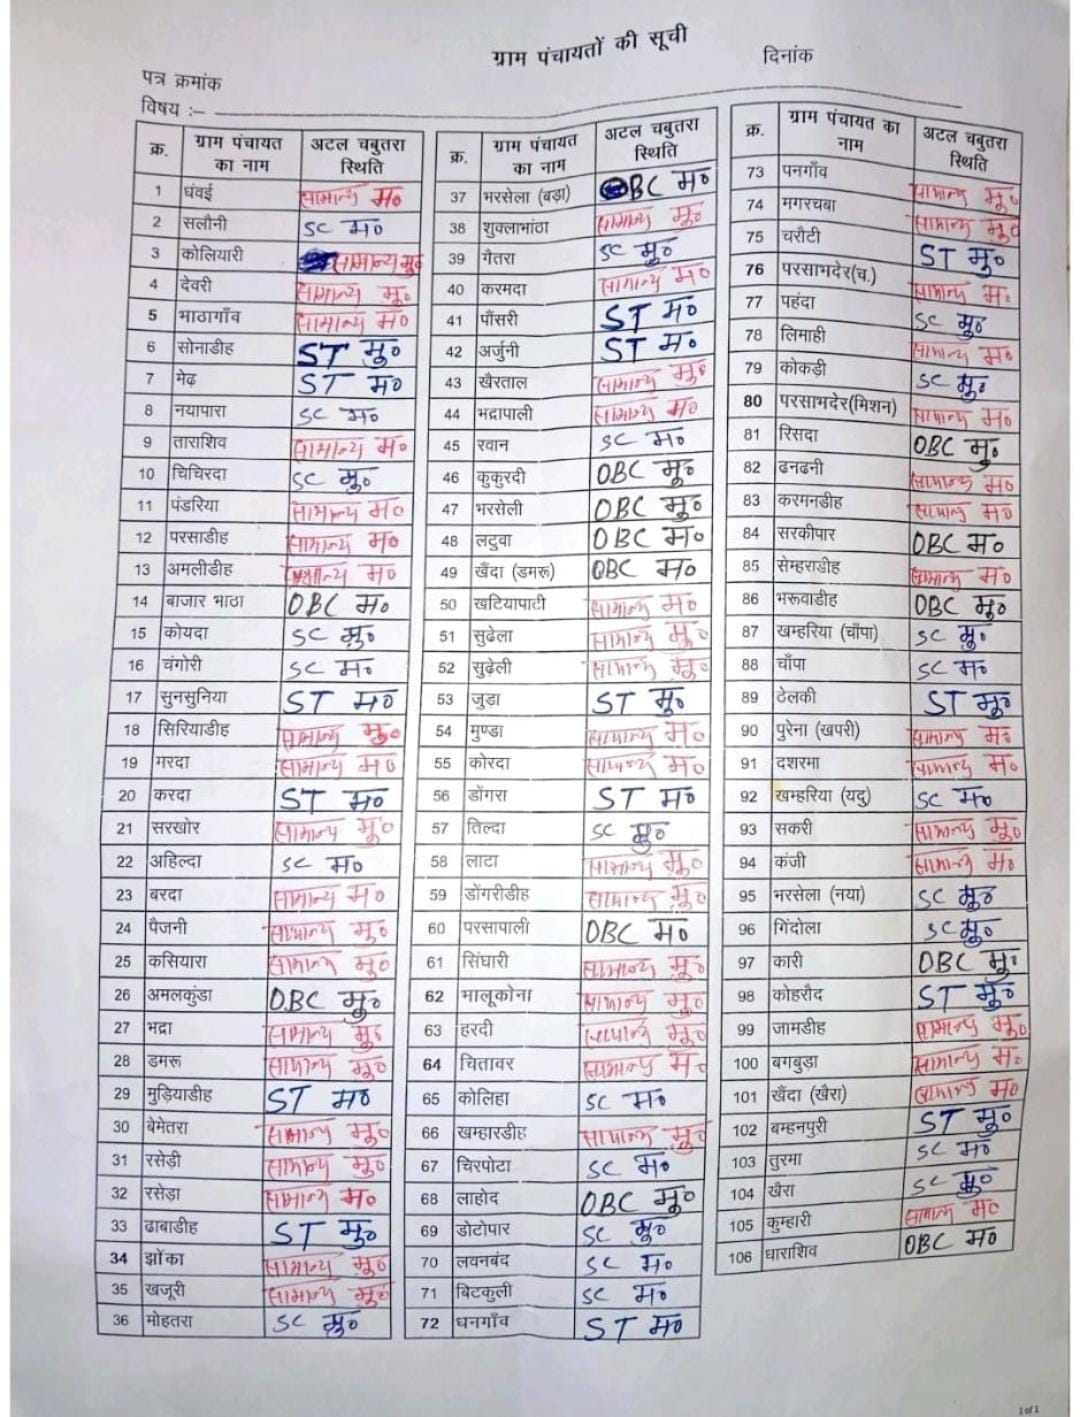 ग्राम पंचायतों की सूची
दिनांक
पत्र क्रमांक
विषय :–
क्र. ग्राम पंचायत का नाम अटल चबुतरा स्थिति
1 धंवई सामान्य म०
2 सलौनी SC म०
3 कोलियारी सामान्य मु०
4 देवरी सामान्य मु०
5 भाठागाँव सामान्य म०
6 सोनाडीह ST मु०
7 मेढ़ ST म०
8 नयापारा SC म०
9 ताराशिव सामान्य म०
10 चिचिरदा SC मु०
11 पंडरिया सामान्य म०
12 परसाडीह सामान्य म०
13 अमलीडीह सामान्य म०
14 बाजार भाठा OBC म०
15 कोयदा SC मु०
16 चंगोरी SC म०
17 सुनसुनिया ST म०
18 सिरियाडीह सामान्य मु०
19 मरदा सामान्य म०
20 करदा ST म०
21 सरखोर सामान्य मु०
22 अहिल्दा SC म०
23 बरदा सामान्य म०
24 पैजनी सामान्य मु०
25 कसियारा सामान्य मु०
26 अमलकुंडा OBC मु०
27 भद्रा सामान्य मु०
28 डमरू सामान्य मु०
29 मुड़ियाडीह ST म०
30 बेमेतरा सामान्य मु०
31 रसेड़ी सामान्य मु०
32 रसेड़ा सामान्य म०
33 ढाबाडीह ST मु०
34 झोंका सामान्य मु०
35 खजूरी सामान्य मु०
36 मोहतरा SC मु०
क्र. ग्राम पंचायत का नाम अटल चबुतरा स्थिति
37 भरसेला (बड़ा) OBC म०
38 शुक्लाभांठा सामान्य मु०
39 गैतरा SC मु०
40 करमदा सामान्य म०
41 पौंसरी ST म०
42 अर्जुनी ST म०
43 खैरताल सामान्य मु०
44 भद्रापाली सामान्य म०
45 रवान SC म०
46 कुकुरदी OBC मु०
47 भरसेली OBC मु०
48 लटुवा OBC म०
49 खैंदा (डमरू) OBC म०
50 खटियापाटी सामान्य म०
51 सुढेला सामान्य मु०
52 सुढेली सामान्य मु०
53 जुड़ा ST मु०
54 मुण्डा सामान्य म०
55 कोरदा सामान्य म०
56 डोंगरा ST म०
57 तिल्दा SC मु०
58 लाटा सामान्य मु०
59 डोंगरीडीह सामान्य मु०
60 परसापाली OBC म०
61 सिंघारी सामान्य मु०
62 भालूकोना सामान्य मु०
63 हरदी सामान्य मु०
64 चितावर सामान्य म०
65 कोलिहा SC म०
66 खम्हारडीह सामान्य मु०
67 चिरपोटा SC म०
68 लाहोद OBC मु०
69 डोटोपार SC मु०
70 लवनबंद SC म०
71 बिटकुली SC म०
72 धनगाँव ST म०
क्र. ग्राम पंचायत का नाम अटल चबुतरा स्थिति
73 पनगाँव सामान्य मु०
74 मगरचबा सामान्य मु०
75 चरौटी ST मु०
76 परसाभदेर(च.) सामान्य म०
77 पहंदा SC मु०
78 लिमाही सामान्य म०
79 कोकड़ी SC मु०
80 परसाभदेर(मिशन) सामान्य म०
81 रिसदा OBC मु०
82 ढनढनी सामान्य म०
83 करमनडीह सामान्य म०
84 सरकीपार OBC म०
85 सेम्हराडीह सामान्य म०
86 भरूवाडीह OBC मु०
87 खम्हरिया (चाँपा) SC मु०
88 चाँपा SC म०
89 ठेलकी ST मु०
90 पुरेना (खपरी) सामान्य म०
91 दशरमा सामान्य म०
92 खम्हरिया (यदु) SC म०
93 सकरी सामान्य मु०
94 कंजी सामान्य म०
95 भरसेला (नया) SC मु०
96 गिंदोला SC मु०
97 कारी OBC मु०
98 कोहरौद ST मु०
99 जामडीह सामान्य मु०
100 बगबुड़ा सामान्य म०
101 खैंदा (खैरा) सामान्य म०
102 बम्हनपुरी ST मु०
103 तुरमा SC म०
104 खैरा SC मु०
105 कुम्हारी सामान्य म०
106 धाराशिव OBC म०
1 of 1